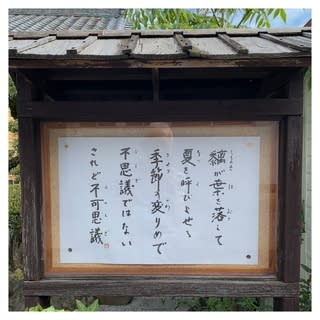 が葉を落して
夏を呼びよせる
季節の変りめで
不思議ではない
されど不可思議